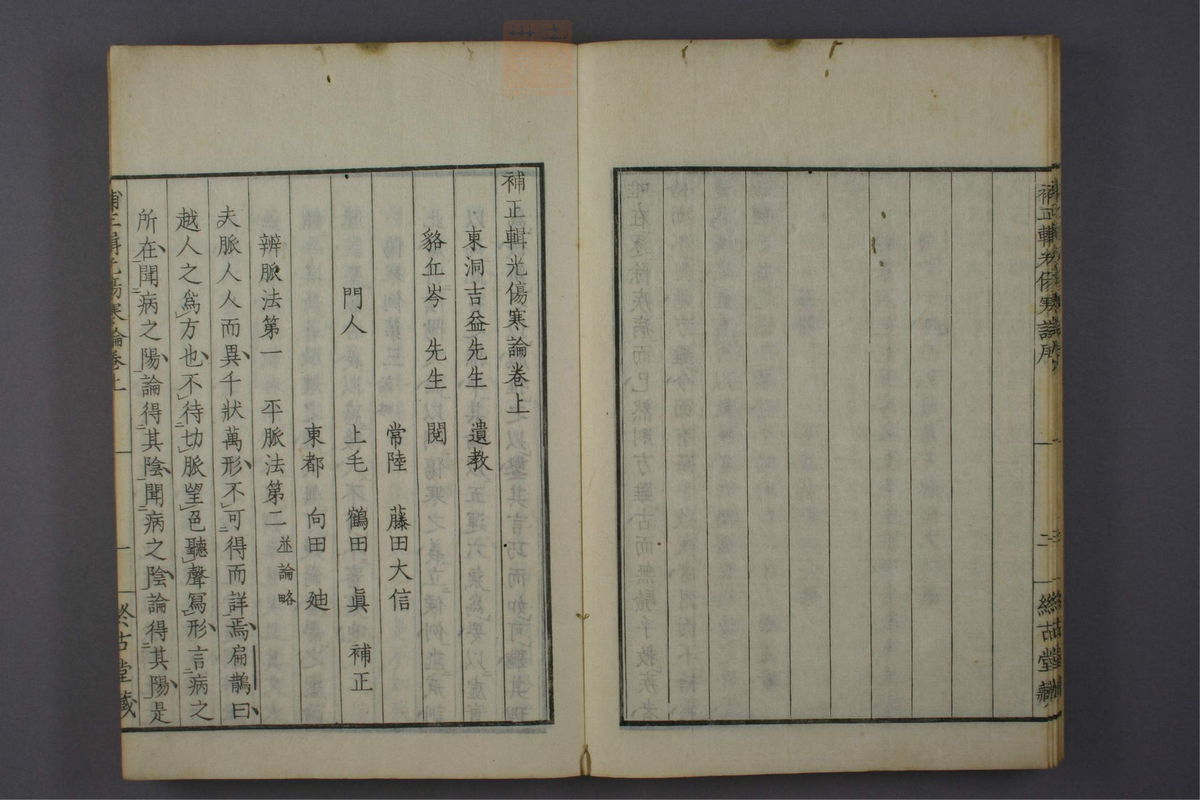 補正輯光傷寒論序
二
終古堂藏
補正輯光傷寒論卷上
東洞吉益先生 遺教
貉丘岑先生 閱
門人 常陸 藤田大信
上毛 鶴田 真 補正
東都 向田 廸
辨脈法第一 平脈法第二 並論略
夫脈人人而異千狀萬形不可得而詳焉扁鵲曰
越人之為方也不待切脈望色聽聲寫形言病之
所在聞病之陽論得其陰聞病之陰論得其陽是
補正輯光傷寒論卷上
一
終古堂藏